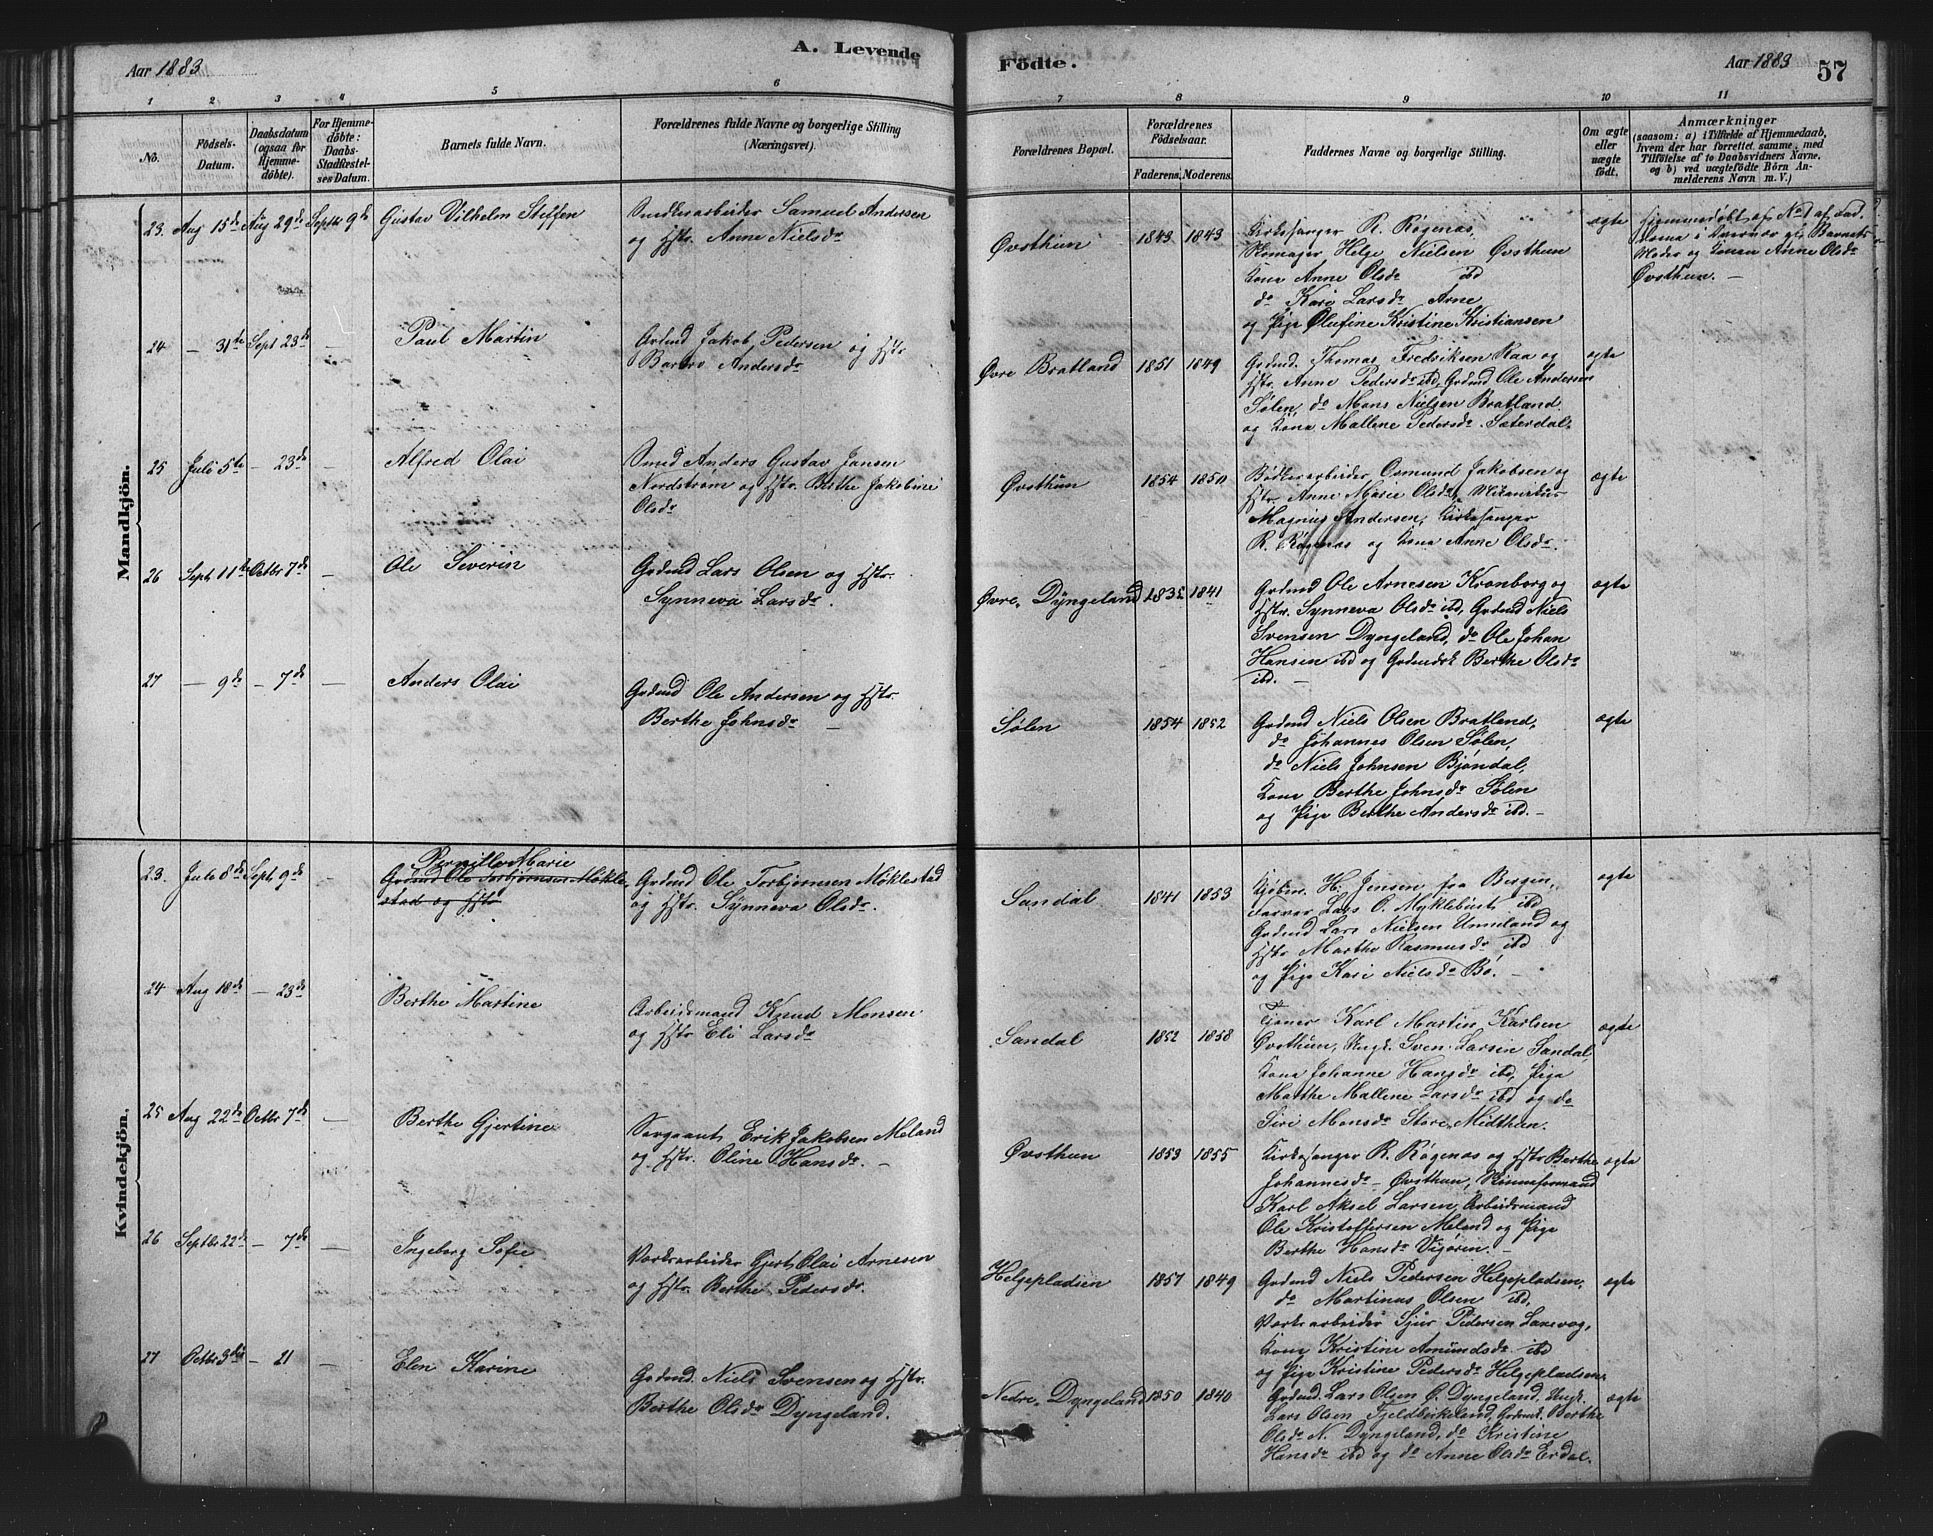 Aar 1883
A. Levende
Födte.
Aar 1883
57
1 2 3 4 5 6
7 8 9 10 11
No.
Födsels-Datum.
Daabsdatum (ogsaa for Hjemme-döbte).
For Hjemme-döbte: Daabs-Stadfæstel-ses Datum.
Barnets fulde Navn.
Forældrenes fulde Navne og borgerlige Stilling (Næringsvei).
Forældrenes Bopæl.
Forældrenes Födselsaar.
Faderens. Moderens.
Faddernes Navne og borgerlige Stilling.
Om ægte eller uægte födt.
Anmærkninger
(saasom: a) i Tilfælde af Hjemmedaab, hvem der har forrettet samme, med Tilföielse af to Daabsvidners Navne, og b) ved uægtefödte Börn An-melderens Navn m. V.)
Mandkjön.
23. Aug 15de Aug 29de Septbr 9de Gustav Vilhelm Steffen
Smedkerarbeider Samuel Andersen
og Hstr. Anne Nielsdr
Øvsthun 1843 1843
Kirkesanger R. Røgenæs,
Skomager Helge Nielsen Øvsthun
Kona Anne Olsdr ibd
do Kari Larsdr Arne
og Pige Olufine Kristine Kristiansen
ægte
Hjemmedøbt af No 1 af Fad-
derne i Overvær af Barnets
Moder og Konen Anne Olsdr
Øvsthun. —
24 — 31te Sept 23de — Paul Martin
Grdmd Jakob Pedersen og Hstr
Barbro Andersdr
Øvre Bratland 1851 1849
Grdmd. Thomas Fredriksen Raa og
Hstr. Anne Pedersdr ibd, Grdmd Ole Andersen
Sølen, do Mons Nielsen Bratland
og Kona Mallene Pedersdr Sæterdal.
ægte
25 Juli 5te — 23de — Alfred Olai
Smed Anders Gustav Jansen
Nordstrøm og Hstr. Berthe Jakobine
Olsdr
Øvsthun 1854 1850
Bødkerarbeider Osmund Jakobsen og
Hstr. Anne Marie Olsdr,
Magnus Andersen, Kirkesanger
R. Røgenæs og Kona Anne Olsdr.
ægte
26 Sept 11te Octbr 7de — Ole Severin
Grdmd Lars Olsen og Hstr.
Synneva Larsdr.
Øvre Dyngeland 1832 1841
Grdmd Ole Arnesen Kronborg og
Hstr. Synneva Olsdr ibd, Grdmd Niels
Svensen Dyngeland, do Ole Johan
Hansen ibd og Grdmdsk Berthe Olsdr
ibd. —
ægte
27 — 9de — 7de — Anders Olai
Grdmd Ole Andersen og Hstr.
Berthe Johnsdr —
Sølen 1854 1852
Grdmd Niels Olsen Bratland,
do Johannes Olsen Sølen,
do Niels Johnsen Bjøndal,
Kona Berthe Johnsdr Sølen
og Pige Berthe Andersdr ibd. —
ægte
Kvindekjön.
23. Juli 8de Sept 9de — Pernille Marie
Grdmd Ole Torbjørnsen Møkle-
stad og Hstr
Grdmd Ole Torbjørnsen Møklestad
og Hstr. Synneva Olsdr.
Sandal 1841 1853
Kjøbm. H. Jensen fra Bergen,
Farver Lars O. Myklebust ibd
Grdmd Lars Nielsen Unneland og
Hstr Marthe Rasmusdr ibd
og Pige Kari Nielsdr Bø. —
ægte
24 Aug 18de — 23de — Berthe Martine
Arbeidsmand Knud Monsen
og Hstr Eli Larsdr
Sandal 1852 1858
Tjener Karl Martin Karlsen
Øvsthun, Ungk. Sven Larsen Sandal,
Kona Johanne Hansdr ibd, Pige
Marthe Mallene Larsdr ibd og do
Siri Monsdr Store Midthun.
ægte
25 Aug 22de Octbr 7de — Berthe Gjertine
Sergeant Erik Jakobsen Meland
og Hstr. Oline Hansdr. —
Øvsthun 1853 1855
Kirkesanger R. Røgenæs og Hstr Berthe
Johannesdr Øvsthun,
Karl Aksel Larsen, Arbeidsmand
Ole Kristoffersen Meland og Pige
Berthe Hansdr Vigøren. —
ægte
26 Septbr 22de — 7de — Ingeborg Sofie
Værksarbeider Gjert Olai Arnesen
og Hstr. Berthe Pedersdr.
Helgepladsen 1857 1849
Grdmd Niels Pedersen Helgepladsen,
do Martinus Olsen ibd,
Værksarbeider Sjur Pedersen Lanevog,
Kona Kristine Amundsdr ibd
og Pige Kristine Pedersdr Helgepladsen.
ægte
27 Octbr 3die — 21 — Elen Karine
Grdmd. Niels Svensen og Hstr.
Berthe Olsdr Dyngeland.
Nedre Dyngeland 1850 1840
Grdmd. Lars Olsen Ø. Dyngeland, Ungk.
Lars Olsen Fjeldbirkeland, Grdmdk. Berthe
Olsdr N. Dyngeland, do Kristine
Hansdr ibd og do Anne Olsdr Erdal.
ægte